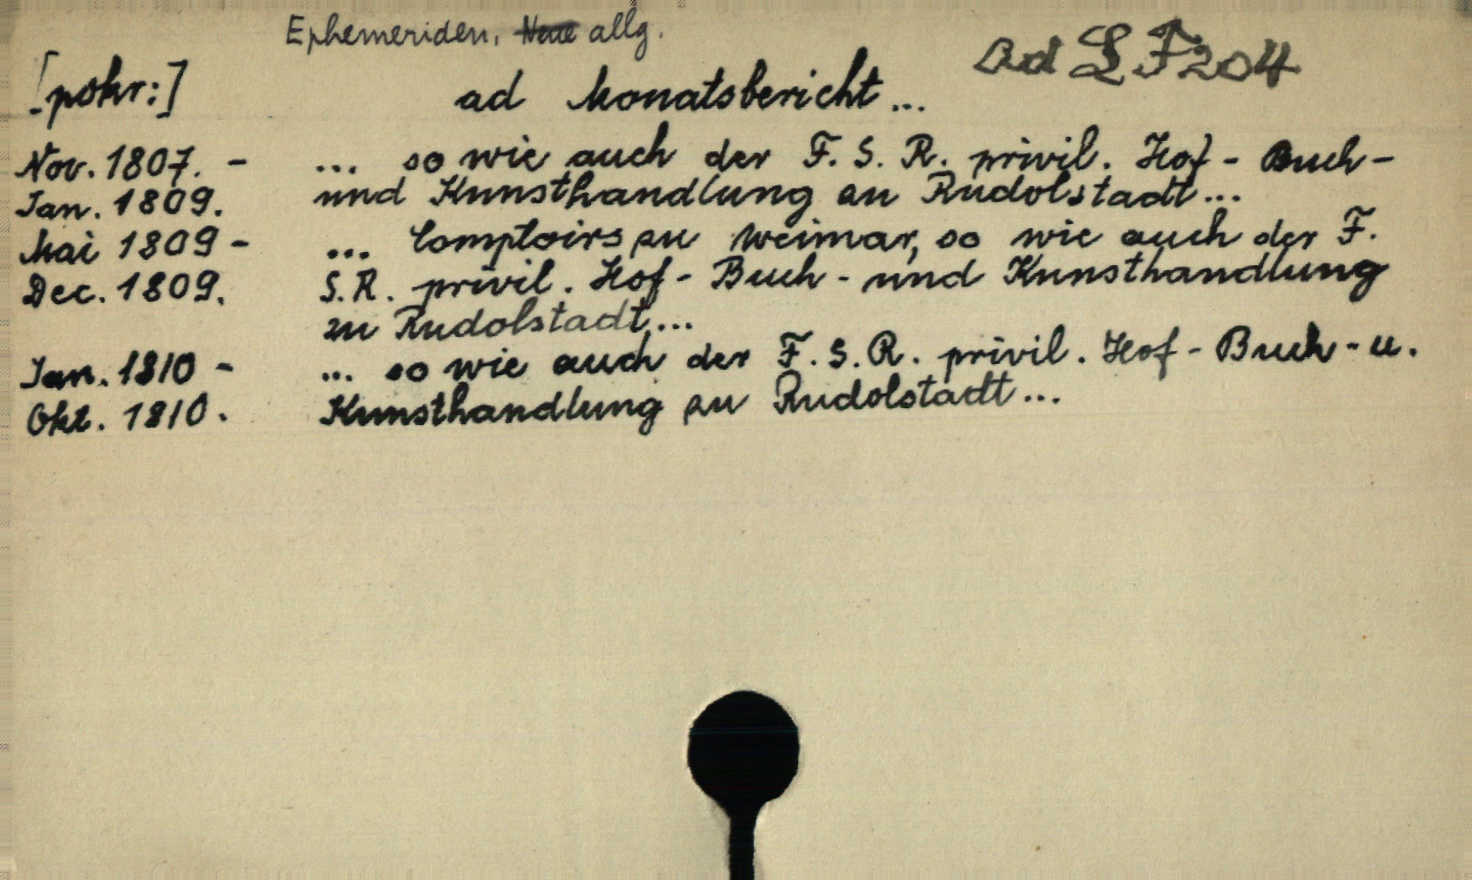 Ephemeriden, Neue allg.
ad L F 204
[pokr:] ad Monatsbericht ...
Nov. 1807. - ... so wie auch der F. S. R. privil. Hof - Buch -
Jan. 1809. und Kunsthandlung zu Rudolstadt ...
Mai 1809 - ... Comptoirs zu Weimar, so wie auch der F.
Dec. 1809. S. R. privil. Hof - Buch - und Kunsthandlung
zu Rudolstadt ...
Jan. 1810 - ... so wie auch der F. S. R. privil. Hof - Buch - u.
Okt. 1810. Kunsthandlung zu Rudolstadt ...